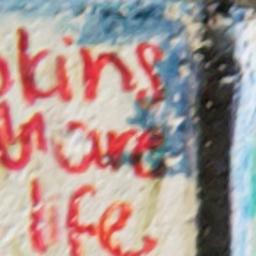 kins
hare
life